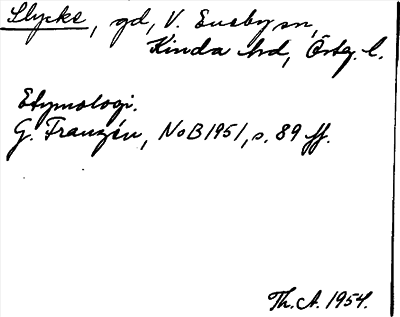 Slycke, gd, V. Eneby sn,
Kinda hd, Östg. l.
Etymologi.
G. Franzén, NoB 1951, s. 89 ff.
Th. A. 1954.